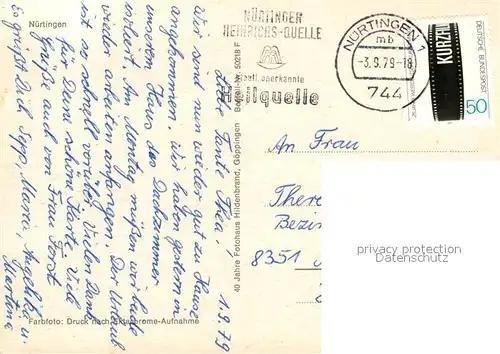 Nürtingen
NÜRTINGER
HEINRICHS-QUELLE
staatl. anerkannte
Heilquelle
NÜRTINGEN 1
mb
-3.9.79-18
744
DEUTSCHE BUNDESPOST
50
1.9.79
Liebe Tante Thea!
Wir sind nun wieder gut zu Hause
angekommen. Wir haben gestern in
unserem Haus das Dachzimmer
Am Montag müßen wir beide
wieder arbeiten anfangen. Der Urlaub
ist so schnell vorüber. Vielen Dank
für Deine schöne Karte. Viele
Grüße auch von Frau Forst
Es grüßt Dich Sepp, Maria, Angelika u.
Martina
40 Jahre Fotohaus Hildenbrand, Göppingen Bestell-Nr. 5218 F
Farbfoto: Druck nach Ektachrome-Aufnahme
An Frau
There
Bezi
8351
privacy protection
Datenschutz